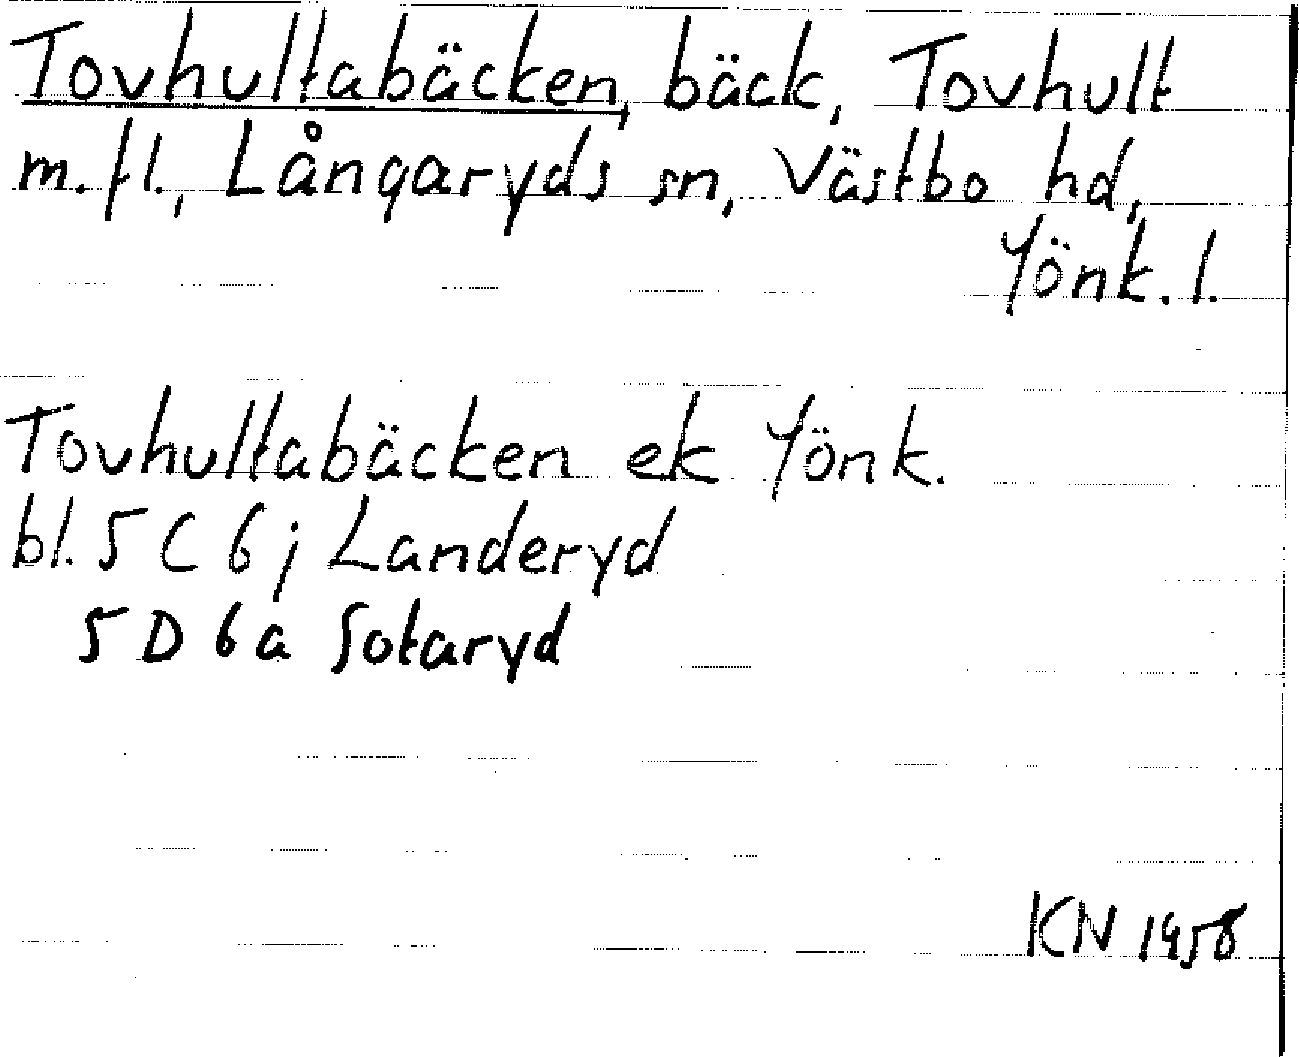 Tovhultabäcken, bäck, Tovhult
m.fl., Långaryds sn, Västbo hd,
Jönk. l.
Tovhultabäcken ek Jönk.
bl. 5 C 6 j Landeryd
5 D 6 a Sotaryd
KN 1958